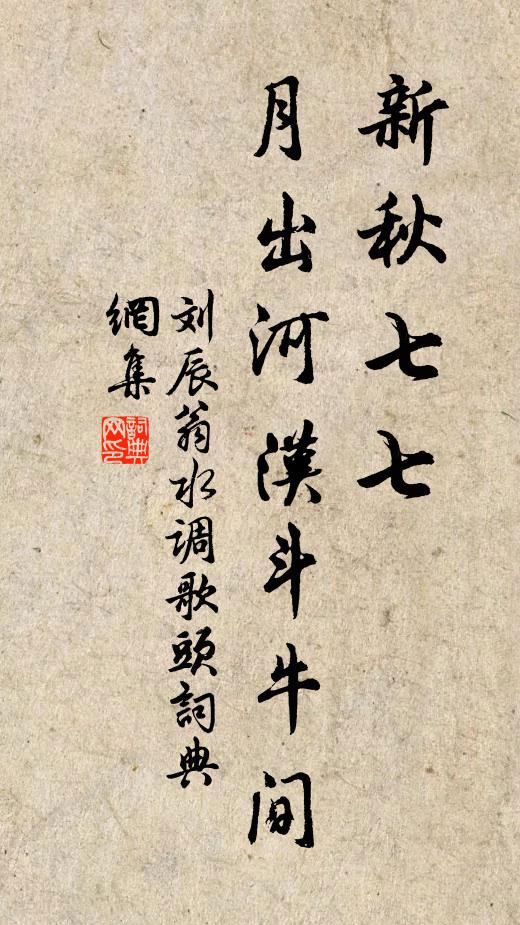 新秋七七
月出河漢斗牛间
刘辰翁水调歌頭詞典
網集
詞典
网印